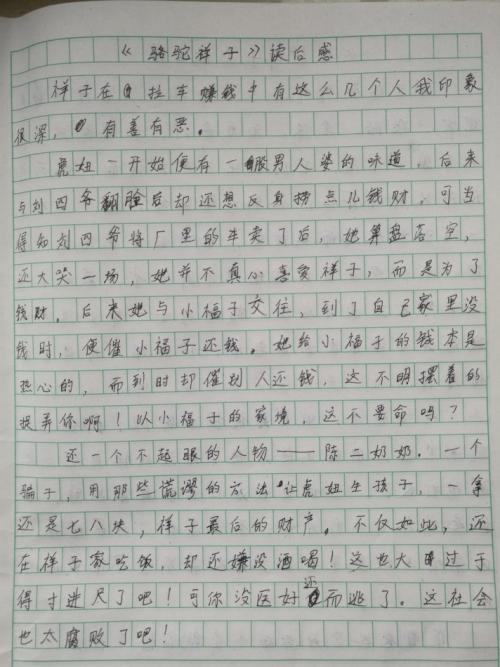 《骆驼祥子》读后感
祥子在拉车赚钱中有这么几个人我印象
很深，有善有恶。
虎妞一开始便有一股男人婆的味道，后来
与刘四爷翻脸后却还想反身捞点儿钱财，可当
得知刘四爷将厂里的车卖了后，她算盘落空，
还大哭一场，她并不真心喜爱祥子，而是为了
钱财。后来她与小福子交往，到了自己家里没
钱时，便催小福子还钱。她给小福子的钱本是
热心的，而到时却催别人还钱，这不明摆着的
捉弄你啊！以小福子的家境，这不要命吗？
还一个不起眼的人物——陈二奶奶。一个
骗子，用那些荒谬的方法让虎妞生孩子，一拿
还是七八块，祥子最后的财产。不仅如此，还
在祥子家吃饭，却还嫌没酒喝！这也太过于
得寸进尺了吧！可你没医好还而逃了。这社会
也太腐败了吧！